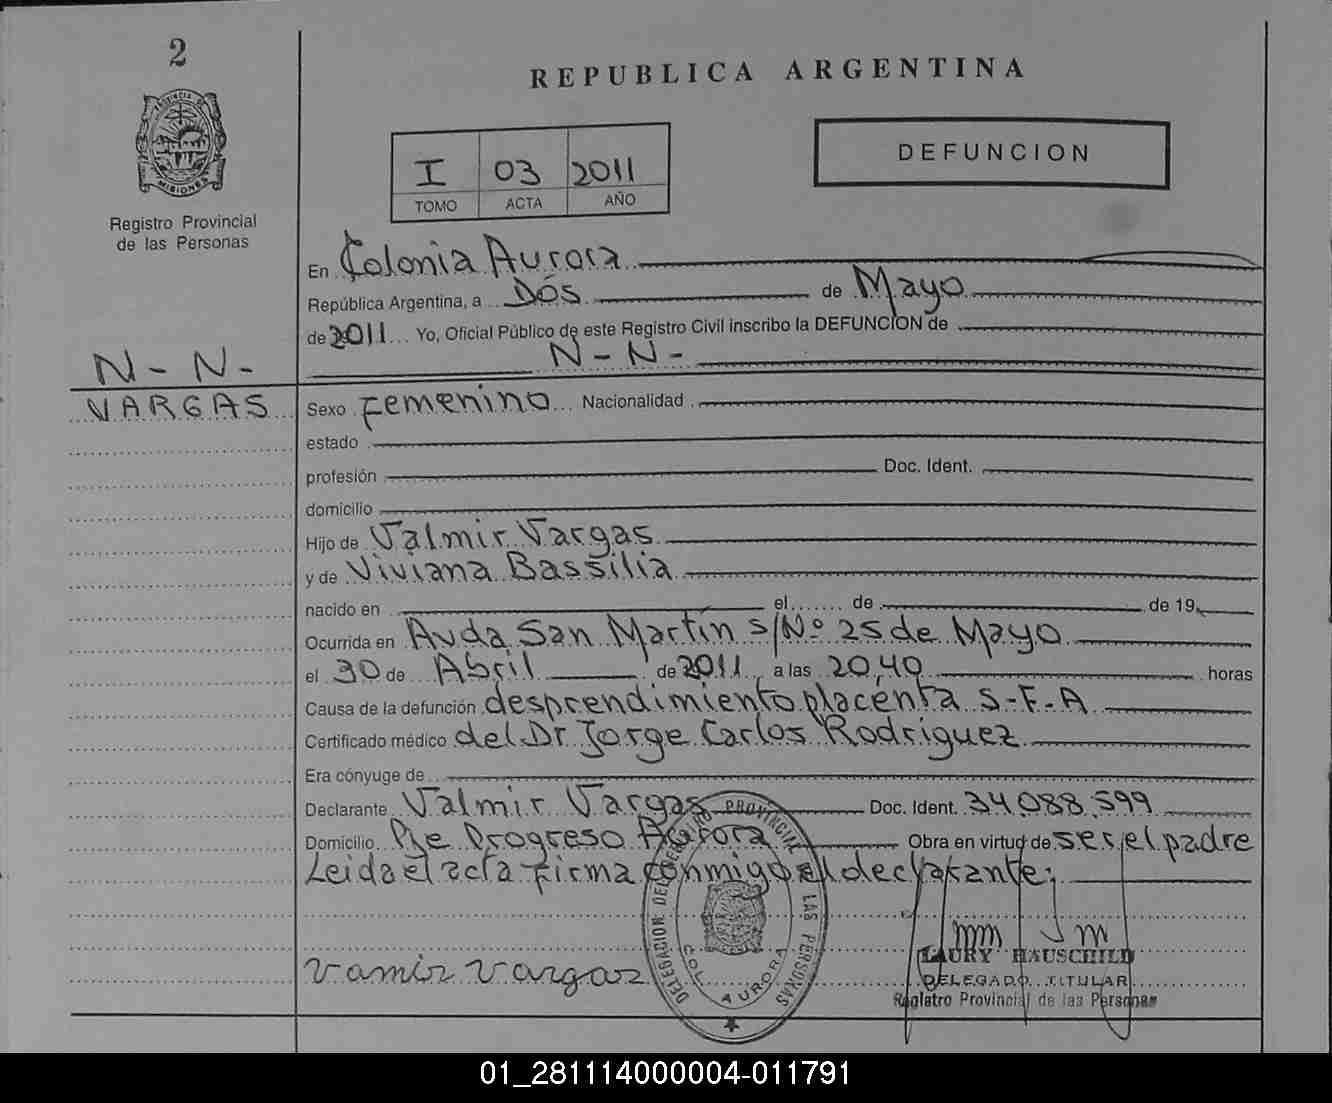 2
PROVINCIA DE
MISIONES
Registro Provincial
de las Personas
N - N -
VARGAS
REPUBLICA ARGENTINA
I 03 2011
TOMO ACTA AÑO
DEFUNCION
En Colonia Aurora
República Argentina, a Dós de Mayo
de 2011 Yo, Oficial Público de este Registro Civil inscribo la DEFUNCION de
N - N -
Sexo Femenino Nacionalidad
estado
profesión Doc. Ident.
domicilio
Hijo de Valmir Vargas
y de Viviana Bassilia
nacido en el de de 19
Ocurrida en Avda San Martín S/Nº 25 de Mayo
el 30 de Abril de 2011, a las 20,40 horas
Causa de la defunción desprendimiento placenta S-F-A
Certificado médico del Dr Jorge Carlos Rodriguez
Era cónyuge de
Declarante Valmir Vargas Doc. Ident. 34,088,599
Domicilio Pje Progreso Aurora Obra en virtud de ser el padre
Leida el acta firma conmigo el declarante;
vamir vargas
DELEGACION DEL REGISTRO PROVINCIAL DE LAS PERSONAS
COL. AURORA
LAURY HAUSCHILD
DELEGADO TITULAR
Registro Provincial de las Personas
01_281114000004-011791